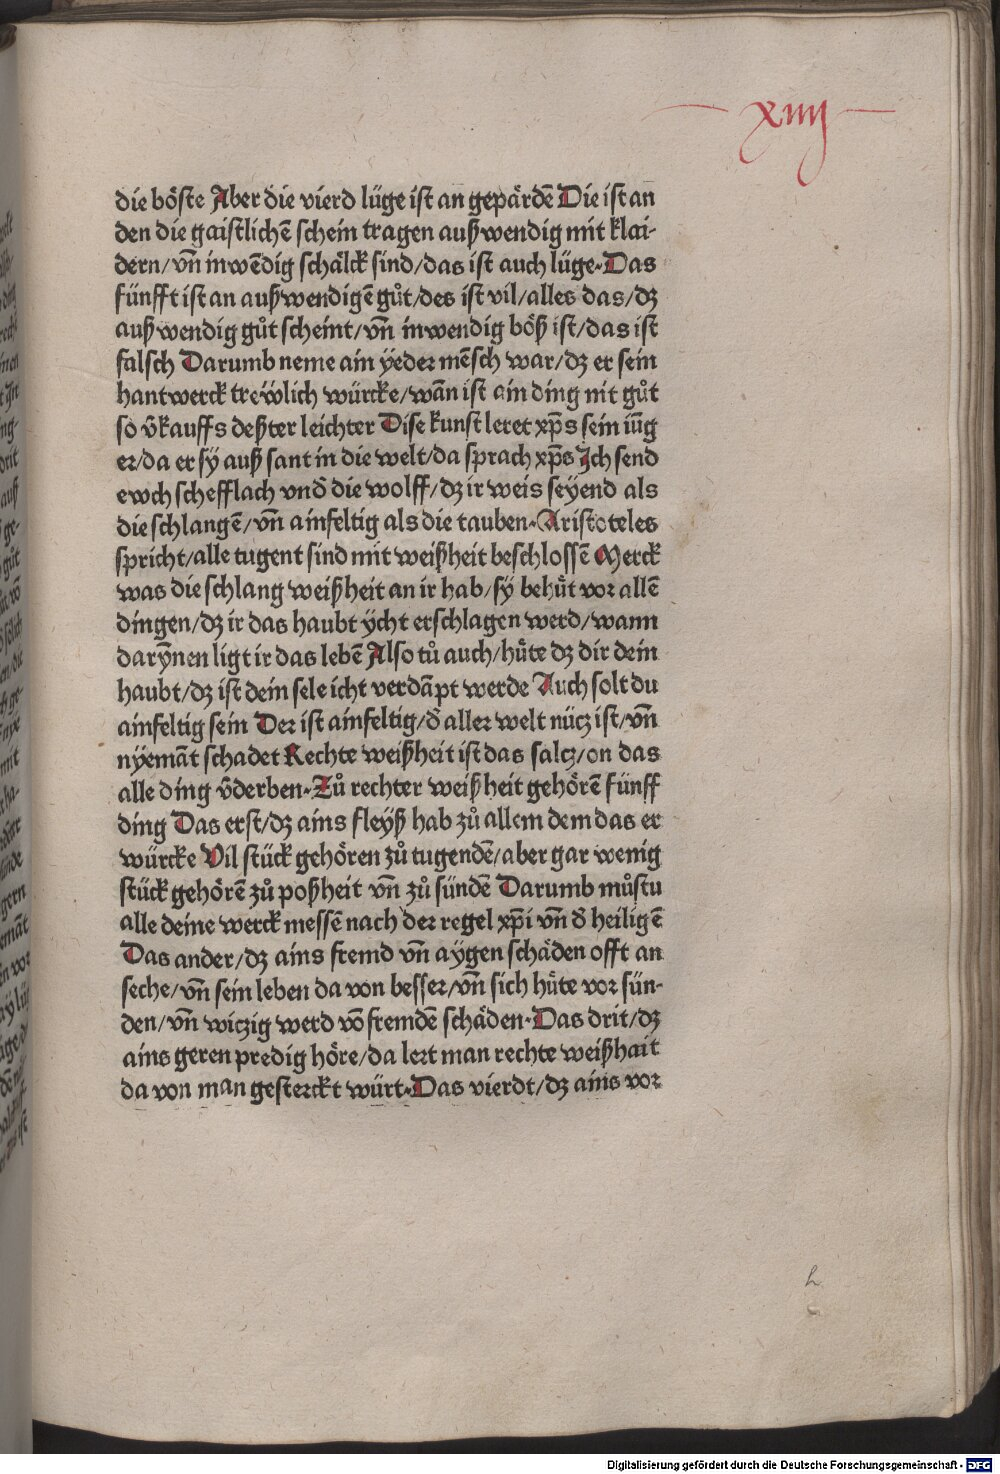 xiiij
die böste Aber die vierd lüge ist an gepärdē Die ist an
den die gaistlichē schein tragen außwendig mit klai-
dern/vn̄ inwēdig schälck sind/das ist auch lüge·Das
fünfft ist an außwendigē gůt/des ist vil/alles das/dz
außwendig gůt scheint/vn̄ inwendig böß ist/das ist
falsch Darumb neme ain ÿeder mēsch war/dz er sein
hantwerck treẅlich würcke/wān ist ain ding nit gůt
so v̄kauffs deßter leichter Dise kunst leret xp̄s sein iūg
er/da er sÿ auß sant in die welt/da sprach xp̄s Ich send
ewch schefflach vnd̄ die wolff/dz ir weis seÿend als
die schlangē/vn̄ ainfeltig als die tauben·Aristoteles
spricht/alle tugent sind mit weißheit beschlossē Merck
was die schlang weißheit an ir hab/sÿ behüt vor allē
dingen/dz ir das haubt ÿcht erschlagen werd/wann
darȳnen ligt ir das lebē Also tů auch/hüte dz dir dein
haubt/dz ist dein sele icht verdāpt werde Auch solt du
ainfeltig sein Der ist ainfeltig/d̄ aller welt nücz ist/vn̄
nyemāt schadet Rechte weißheit ist das salcz/on das
alle ding v̄derben·Zů rechter weißheit gehörē fünff
ding Das erst/dz ains fleÿß hab zů allem dem das er
würcke Vil stück gehören zů tugendē/aber gar wenig
stück gehörē zů poßheit vn̄ zů sündē Darumb můstu
alle deine werck messē nach der regel xp̄i vn̄ d̄ heiligē
Das ander/dz ains fremd vn̄ aygen schäden offt an
seche/vn̄ sein leben da von besser/vn̄ sich hüte vor sün-
den/vn̄ wiczig werd vō fremdē schäden·Das drit/dz
ains geren predig höre/da lert man rechte weißhait
da von man gesterckt würt·Das vierdt/dz ains vor
h
Digitalisierung gefördert durch die Deutsche Forschungsgemeinschaft - DFG